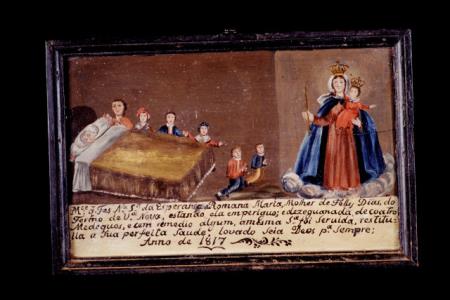 M.ce q̃ Fes N.a S.ra da Esperança Romana Maria, Molher de Feliz Dias, do
Termo de V.a Nova, estando ela em perigus, e dezeguanada de coatro
Medeguos, e cem remedio algum, a mesma S.ra foi Seruida, restitu-
ila a sua perfeita Saude, lovado Seia Deos p.a Sempre;
Anno de 1817